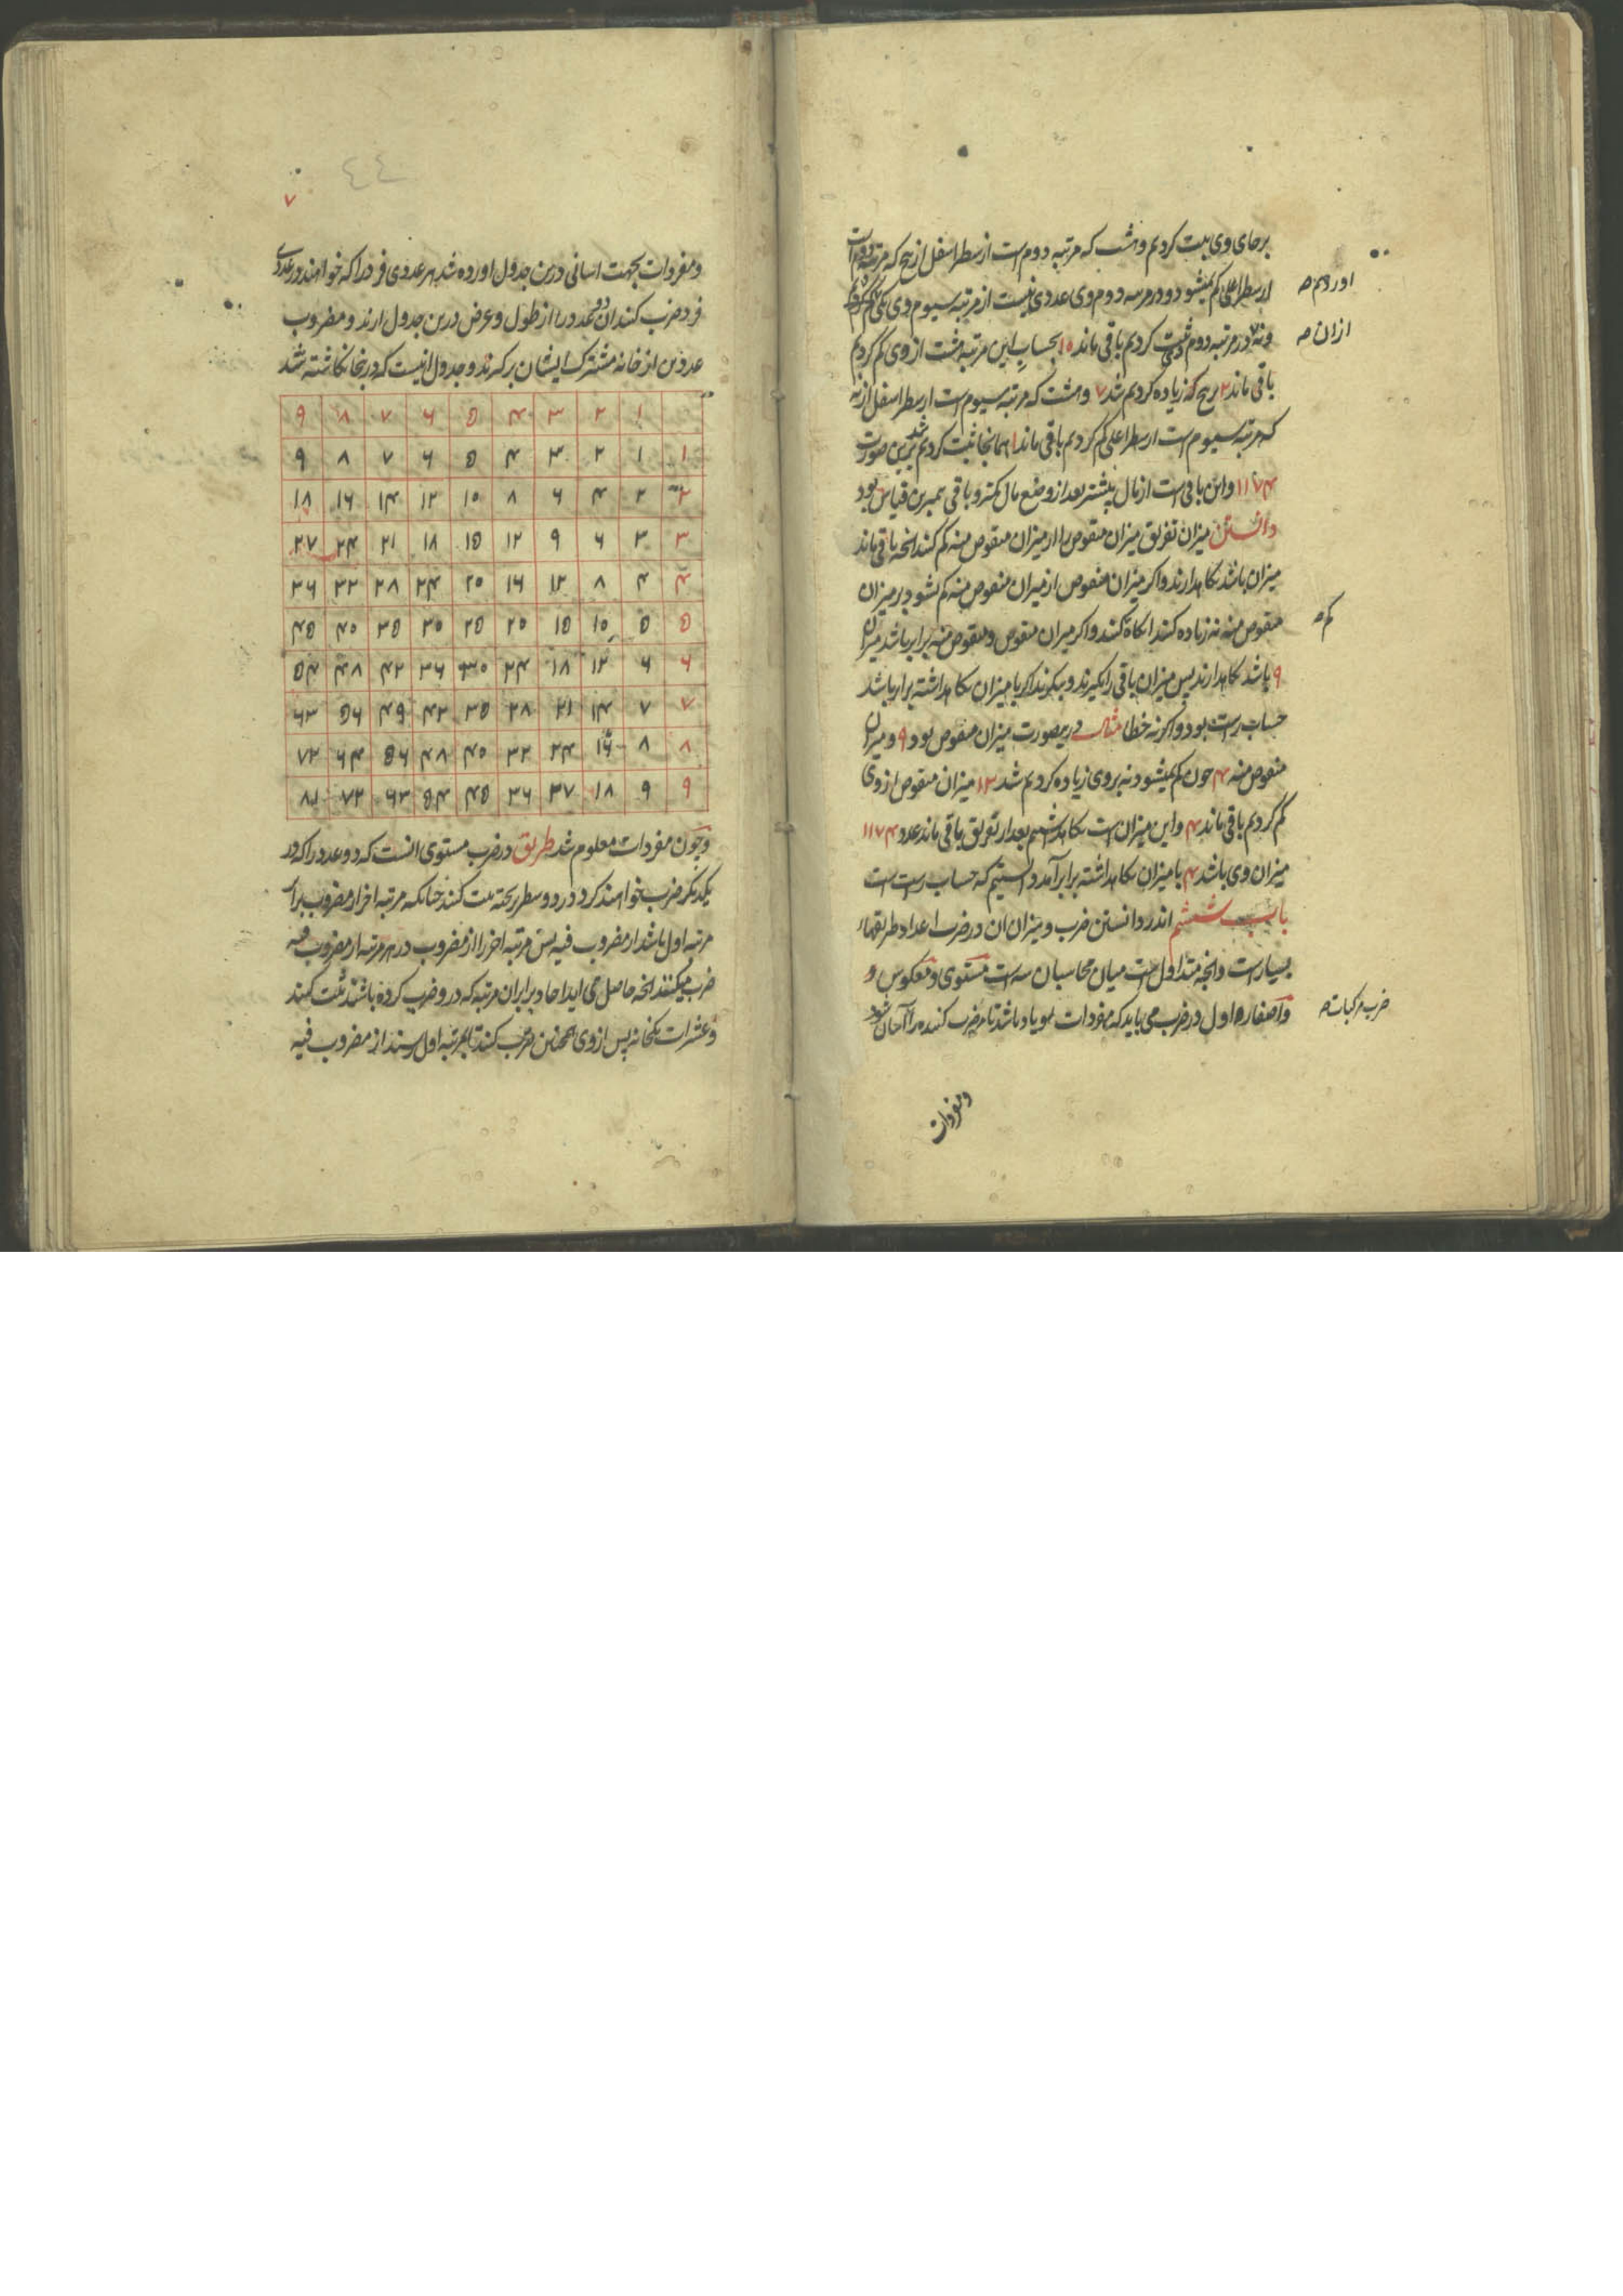 برجای وی ثبت کردیم و هشت که مرتبه دوم است از سطر اسفل از پنج که مرتبه دوم است
از سطر اعلی کم نمیشود و در مرتبه دوم وی عددی نیست از مرتبه سیوم وی یکی کم کردیم
اوردیم صح
و نه در مرتبه دوم ثبت کردیم باقی ماند ۱۵ بحساب این مرتبه هشت از وی کم کردیم
ازان صح
باقی ماند ۲ بر پنج که زیاده کردیم شد ۷ و هشت که مرتبه سیوم است از سطر اسفل از نه
که مرتبه سیوم است از سطر اعلی کم کردیم باقی ماند ۱ همانجا ثبت کردیم شد برین صورت
۱۱۷۴ و این باقی است از مال بیشتر بعد از وضع مال کمتر و باقی همبرین قیاس بود
دانستن میزان تفریق میزان منقوص را از میزان منقوص منه کم کنند انچه باقی ماند
میزان باشد نکاهدارند و اکر میزان منقوص از میزان منقوص منه کم نشود بر میزان
منقوص منه نه زیاده کنند انکاه کم کنند و اکر میزان منقوص و منقوص منه برابر باشد میزان
کم صح
۹ باشد نکاهدارند پس میزان باقی را بکیرند و بنکرند اکر با میزان نکاهداشته برابر باشد
حساب راست بود و اکر نه خطا مثال درینصورت میزان منقوص بود ۹ و میزان
منقوص منه ۴ چون کم نمیشود نه بر وی زیاده کردیم شد ۱۳ میزان منقوص از وی
کم کردیم باقی ماند ۴ و این میزان است نکاهداشتیم بعد از تفریق باقی ماند عدد ۱۱۷۴
میزان وی باشد ۴ با میزان نکاهداشته برابر آمد دانستیم که حساب راست است
باب ششم اندر دانستن ضرب و میزان ان و در ضرب اعداد طریقهاء
بسیار است و انچه متداول است میان محاسبان سه است مستوی و معکوس و
و اصفار اول در ضرب می باید که مفردات بود یاد باشد تا ضرب کننده را آسان شود
ضرب مرکبات صح
و مفردات
۷
٤٤
و مفردات بجهت اسانی درین جدول اورده شد هر عددی فرد را که خواهند در عددی
فرد ضرب کنند ان دو عدد را از طول و عرض درین جدول ارند و مضروب
عددین از خانه مشترک ایشان برکیرند و جدول اینست که درینجا نکاشته شد
۱ ۲ ۳ ۴ ۵ ۶ ۷ ۸ ۹
۱ ۱ ۲ ۳ ۴ ۵ ۶ ۷ ۸ ۹
۲ ۲ ۴ ۶ ۸ ۱۰ ۱۲ ۱۴ ۱۶ ۱۸
۳ ۳ ۶ ۹ ۱۲ ۱۵ ۱۸ ۲۱ ۲۴ ۲۷
۴ ۴ ۸ ۱۲ ۱۶ ۲۰ ۲۴ ۲۸ ۳۲ ۳۶
۵ ۵ ۱۰ ۱۵ ۲۰ ۲۵ ۳۰ ۳۵ ۴۰ ۴۵
۶ ۶ ۱۲ ۱۸ ۲۴ ۳۰ ۳۶ ۴۲ ۴۸ ۵۴
۷ ۷ ۱۴ ۲۱ ۲۸ ۳۵ ۴۲ ۴۹ ۵۶ ۶۳
۸ ۸ ۱۶ ۲۴ ۳۲ ۴۰ ۴۸ ۵۶ ۶۴ ۷۲
۹ ۹ ۱۸ ۲۷ ۳۶ ۴۵ ۵۴ ۶۳ ۷۲ ۸۱
و چون مفردات معلوم شد طریق در ضرب مستوی انست که دو عدد را که در
یکدیکر ضرب خواهند کرد در دو سطر بر تخته ثبت کنند چنانکه مرتبه اخر از مضروب برابر
مرتبه اول باشد از مضروب فیه پس مرتبه اخر را از مضروب در هر مرتبه از مضروب فیه
ضرب میکنند انچه حاصل می اید احاد برابر ان مرتبه که در و ضرب کرده باشند ثبت کنند
و عشرات بیکخانه پس از وی همچنین ضرب کنند تا بمرتبه اول رسند از مضروب فیه